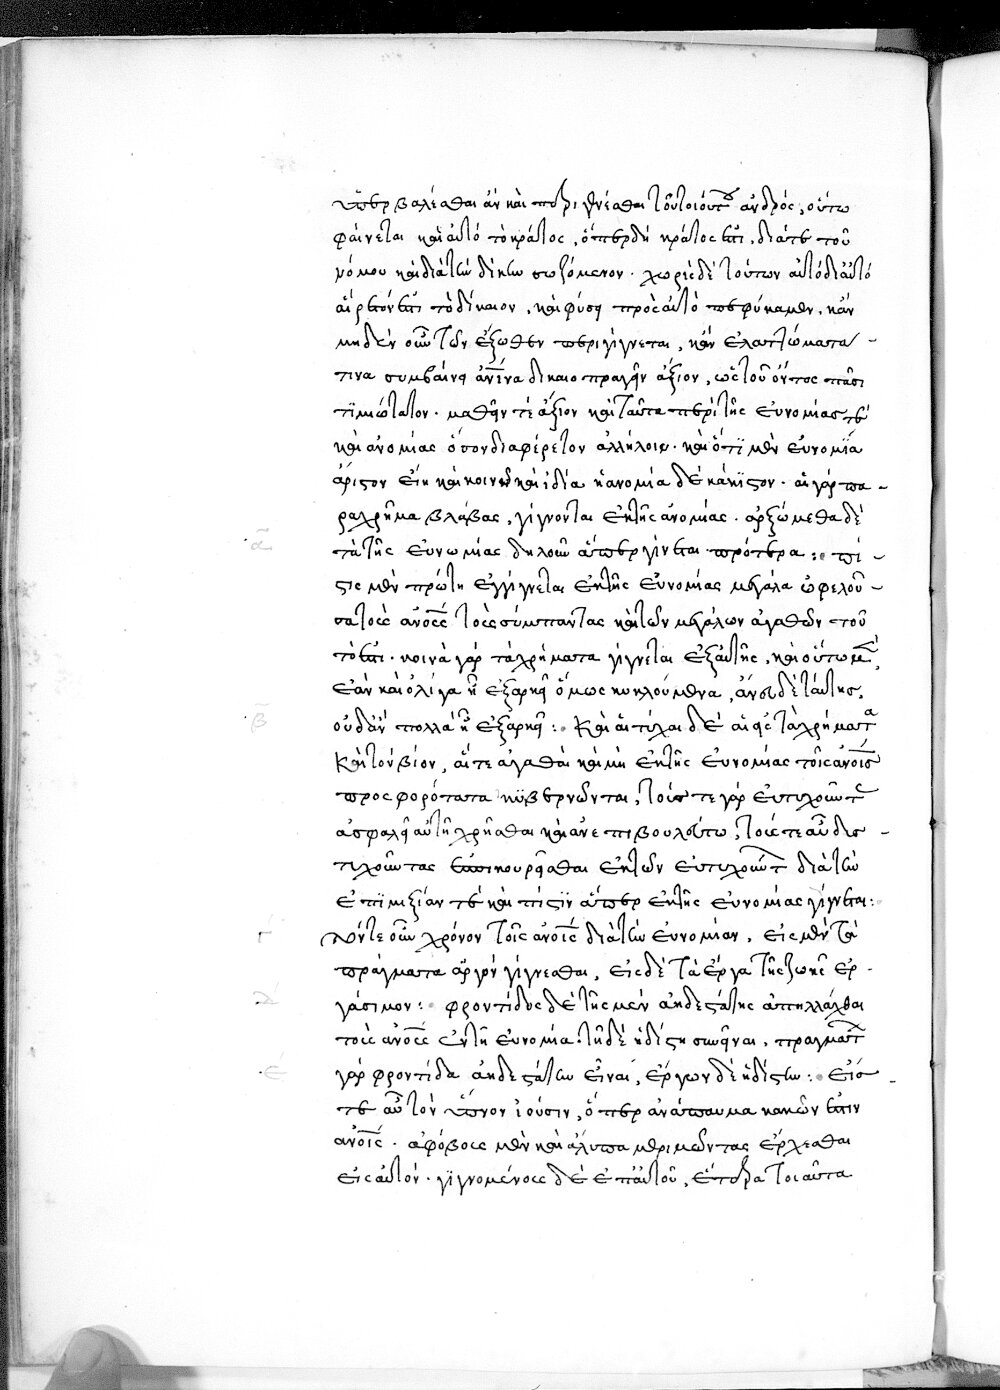 ὑπερβαλέσθαι ἂν καὶ περιγενέσθαι τοῦ τοιούτου ἀνδρός, οὕτω
φαίνεται καὶ αὐτὸ τὸ κράτος, ὅπερ δὴ κράτος ἐστὶ, διά τε τοῦ
νόμου καὶ διὰ τὴν δίκην σωζόμενον. χωρὶς δὲ τούτων αὐτὸ δι' αὑτό
αἱρετόν ἐστι τὸ δίκαιον, καὶ φύσει πρὸς αὐτὸ πεφύκαμεν, κἂν
μηδὲν οὖν τῶν ἔξωθεν περιγίγνεται, κἂν ἐλαττώματα
τινα συμβαίνῃ ἀντίνα δικαιοπραγεῖν ἄξιον, ὡς τοῦ ὄντος πᾶσι
τιμιώτατον. μαθεῖν τὲ ἄξιον καὶ ταῦτα περὶ τῆς εὐνομίας τέ
καὶ ἀνομίας ὁπόσον διαφέρετον ἀλλήλοιν. καὶ ὅτι μὲν εὐνομία
ἄριστον εἴη καὶ κοινῇ καὶ ἰδίᾳ ἡ ἀνομία δὲ κάκιστον. αἱ γὰρ πα-
ραχρῆμα βλάβας, γίγνονται ἐκ τῆς ἀνομίας. ἀρξώμεθα δὲ
τὰ τῆς εὐνωμίας δηλοῦν ἅπερ γίνεται πρότερα: πί-
στις μὲν πρώτη ἐγγίγνεται ἐκ τῆς εὐνομίας μεγάλα ὠφελοῦ-
σα τοὺς ἀνους τοὺς σύμπαντας καὶ τῶν μεγάλων ἀγαθῶν τοῦ
τό ἐστι. κοινὰ γὰρ τὰ χρήματα γίγνεται ἐξ αὐτῆς, καὶ οὕτω μὲν,
ἐὰν καὶ ὀλίγα ᾖ ἐξαρκεῖ ὅμως κυκλούμενα, ἄνευ δὲ ταύτης,
οὐδ' ἂν πολλὰ ᾖ ἐξαρκεῖ: Καὶ αἱ τύχαι δὲ αἱ εἰς τὰ χρήματα
Καὶ τὸν βίον, αἵ τε ἀγαθαὶ καὶ μὴ ἐκ τῆς εὐνομίας τοῖς ἀνοις
προσφορότατα κυβερνῶνται, τούς τε γὰρ εὐτυχοῦντας
ἀσφαλεῖ αὐτῇ χρῆσθαι καὶ ἀνεπιβουλεύτω, τούς τε αὖ δυσ-
τυχοῦντας ἐπικουρεῖσθαι ἐκ τῶν εὐτυχούντων διὰ τὴν
ἐπιμιξίαν τέ καὶ πίστιν ἅπερ ἐκ τῆς εὐνομίας γίνεται:
Τόντε οὖν χρόνον τοῖς ἀνοις διὰ τὴν εὐνομίαν, εἰς μὲν τὰ
πράγματα ἀργὸν γίγνεσθαι, εἰς δὲ τὰ ἔργα τῆς ζωῆς ἐρ-
γάσιμον: φροντίδος δὲ τῆς μὲν ἀηδεστάτης ἀπηλλάχθαι
τοὺς ἀνους ἐν τῇ εὐνομίᾳ. τῇ δὲ ἡδίστῃ συνεῖναι, πραγμάτων
γὰρ φροντίδα ἀηδεστάτην εἶναι, ἔργων δὲ ἡδίστην: εἴσ
τε αὖ τὸν ὕπνον ἰοῦσιν, ὅπερ ἀνάπαυμα κακῶν ἐστιν
ἀνοις. ἀφόβους μὲν καὶ ἄλυπα μεριμνῶντας ἔρχεσθαι
εἰς αὐτόν. γιγνομένους δὲ ἐπ' αὐτοῦ, ἕτερα τοιαῦτα